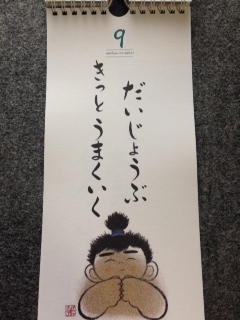 9
だいじょうぶ
きっとうまくいく